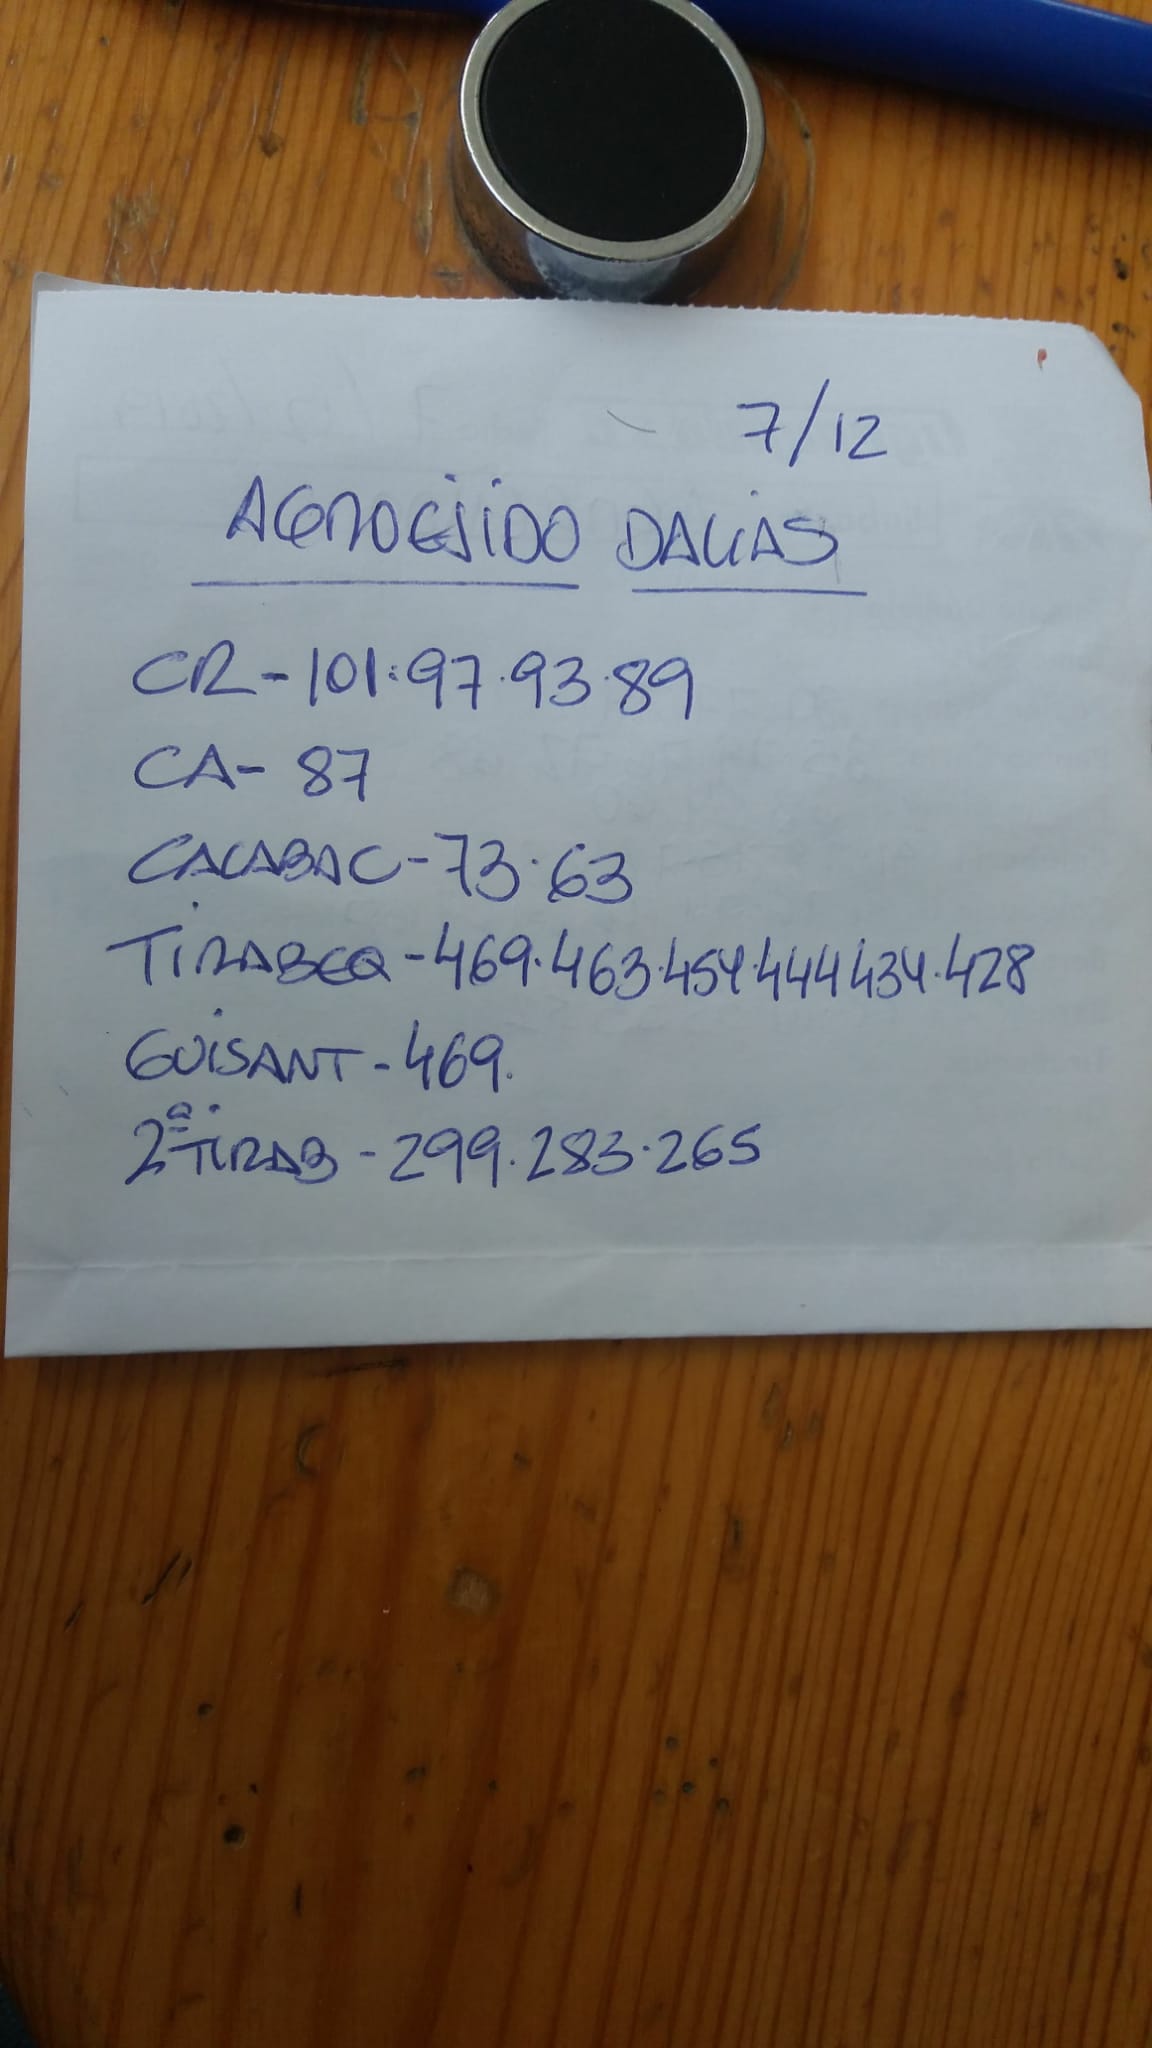 7/12
AGROEJIDO DALIAS
CR-101.97.93.89
CA- 87
CALABAC-73.63
TIRABEQ-469.463.454.444 434.428
GUISANT-469.
2ª TIRAB-299.283.265